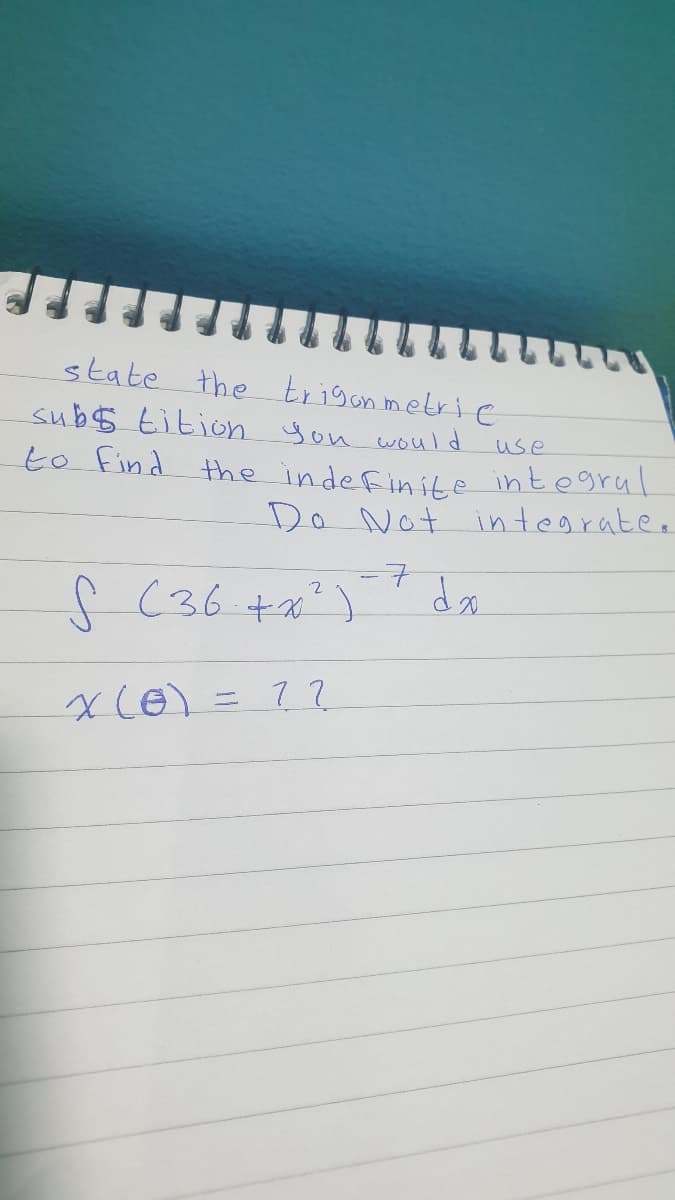 state the trigonmetric
subs tition you would use
to find the indefinite integral
Do Not integrate.
∫ (36 + x²)⁻⁷ dx
x(θ) = ??